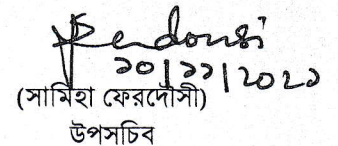 Ferdousi
১০/১১/২০২১
(সামিহা ফেরদৌসী)
উপসচিব